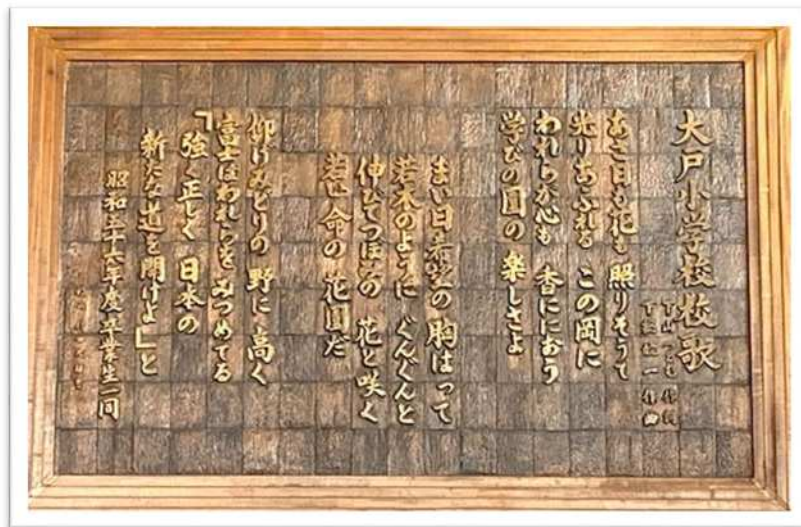 大戸小学校校歌
作詞
一作曲
あさ日も花も 照りそうて
光りあふれる この岡に
われらが心も 香ににおう
学びの園の 楽しさよ
まい日希望の 胸はって
若木のように ぐんぐんと
伸びてつぼみの 花と咲く
若い命の 花園だ
仰げみどりの 野に高く
富士はわれらを みつめてる
「強く正しく 日本の
新たな道を 開けよ」と
昭和五十六年度卒業生一同